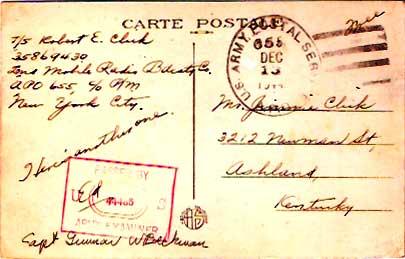 CARTE POSTALE
T/5 Robert E. Click
35869430
2nd Mobile Radio Bdcstg Co.
APO 655, c/o P.M
New York City.
Here's another one.
PASSED BY
U S
44465
ARMY EXAMINER
Capt Gunnar W
U.S. ARMY POSTAL SER
655
DEC
13
Free
Mr. Jimmie Click
3212 Newman St,
Ashland,
Kentucky